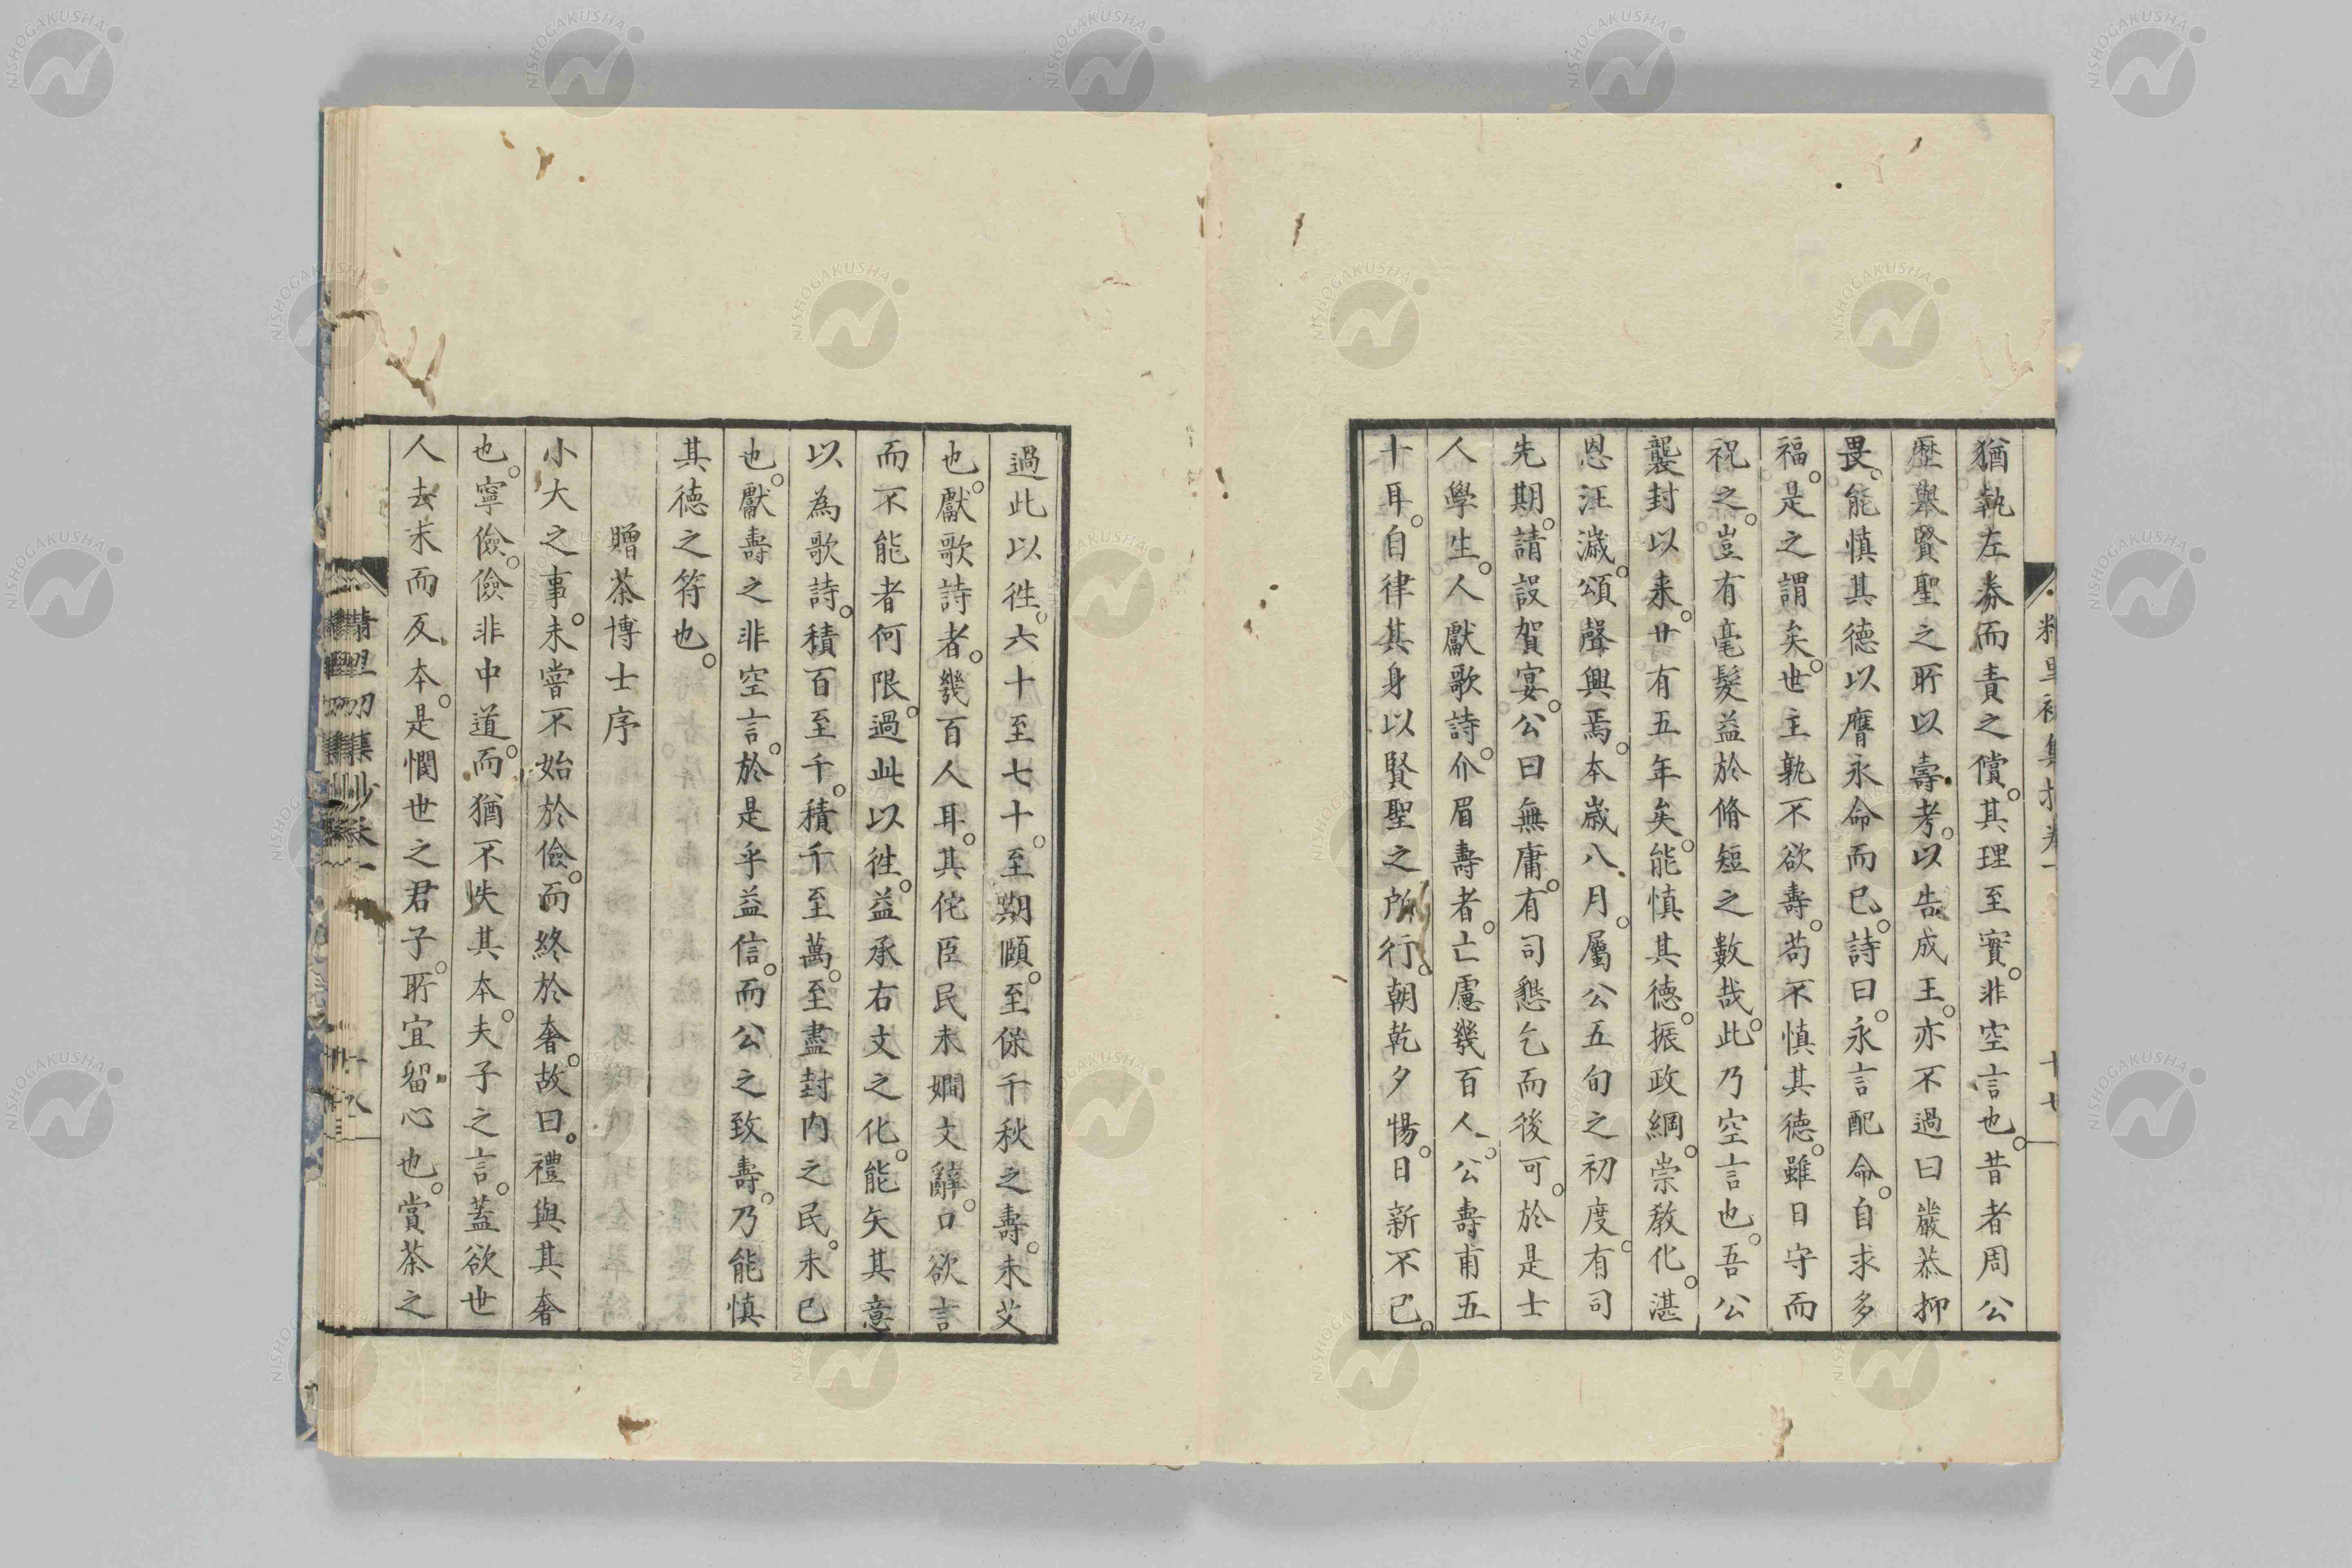 猶執左券而責之償。其理至實。非空言也。昔者周公
歷舉賢聖之所以壽考。以告成王。亦不過曰嚴恭抑
畏。能慎其德以膺永命而已。詩曰。永言配命。自求多
福。是之謂矣。世主孰不欲壽。苟不慎其德。雖日守而
祝之。豈有毫髮益於脩短之數哉。此乃空言也。吾公
襲封以来。廿有五年矣。能慎其德。振政綱。崇教化。湛
恩汪濊。頌聲興焉。本歳八月。屬公五旬之初度。有司
先期。請設賀宴。公曰無庸。有司懇乞而後可。於是士
人學生。人獻歌詩。介眉壽者。亡慮幾百人。公壽甫五
十耳。自律其身以賢聖之所行。朝乾夕惕。日新不已。
過此以徃。六十至七十。至期頤。至保千秋之壽。未艾
也。獻歌詩者。幾百人耳。其侘臣民未嫺文辭。口欲言
而不能者何限。過此以徃。益承右文之化。能矢其意
以為歌詩。積百至千。積千至萬。至盡封内之民。未已
也。獻壽之非空言。於是乎益信。而公之致壽。乃能慎
其德之符也。
贈茶博士序
小大之事。未嘗不始於儉。而終於奢。故曰。禮與其奢
也。寧儉。儉非中道。而猶不失其本。夫子之言。蓋欲世
人去末而反本。是憫世之君子。所宜留心也。賞茶之
精里初集抄卷一
十七
NISHOGAKUSHA